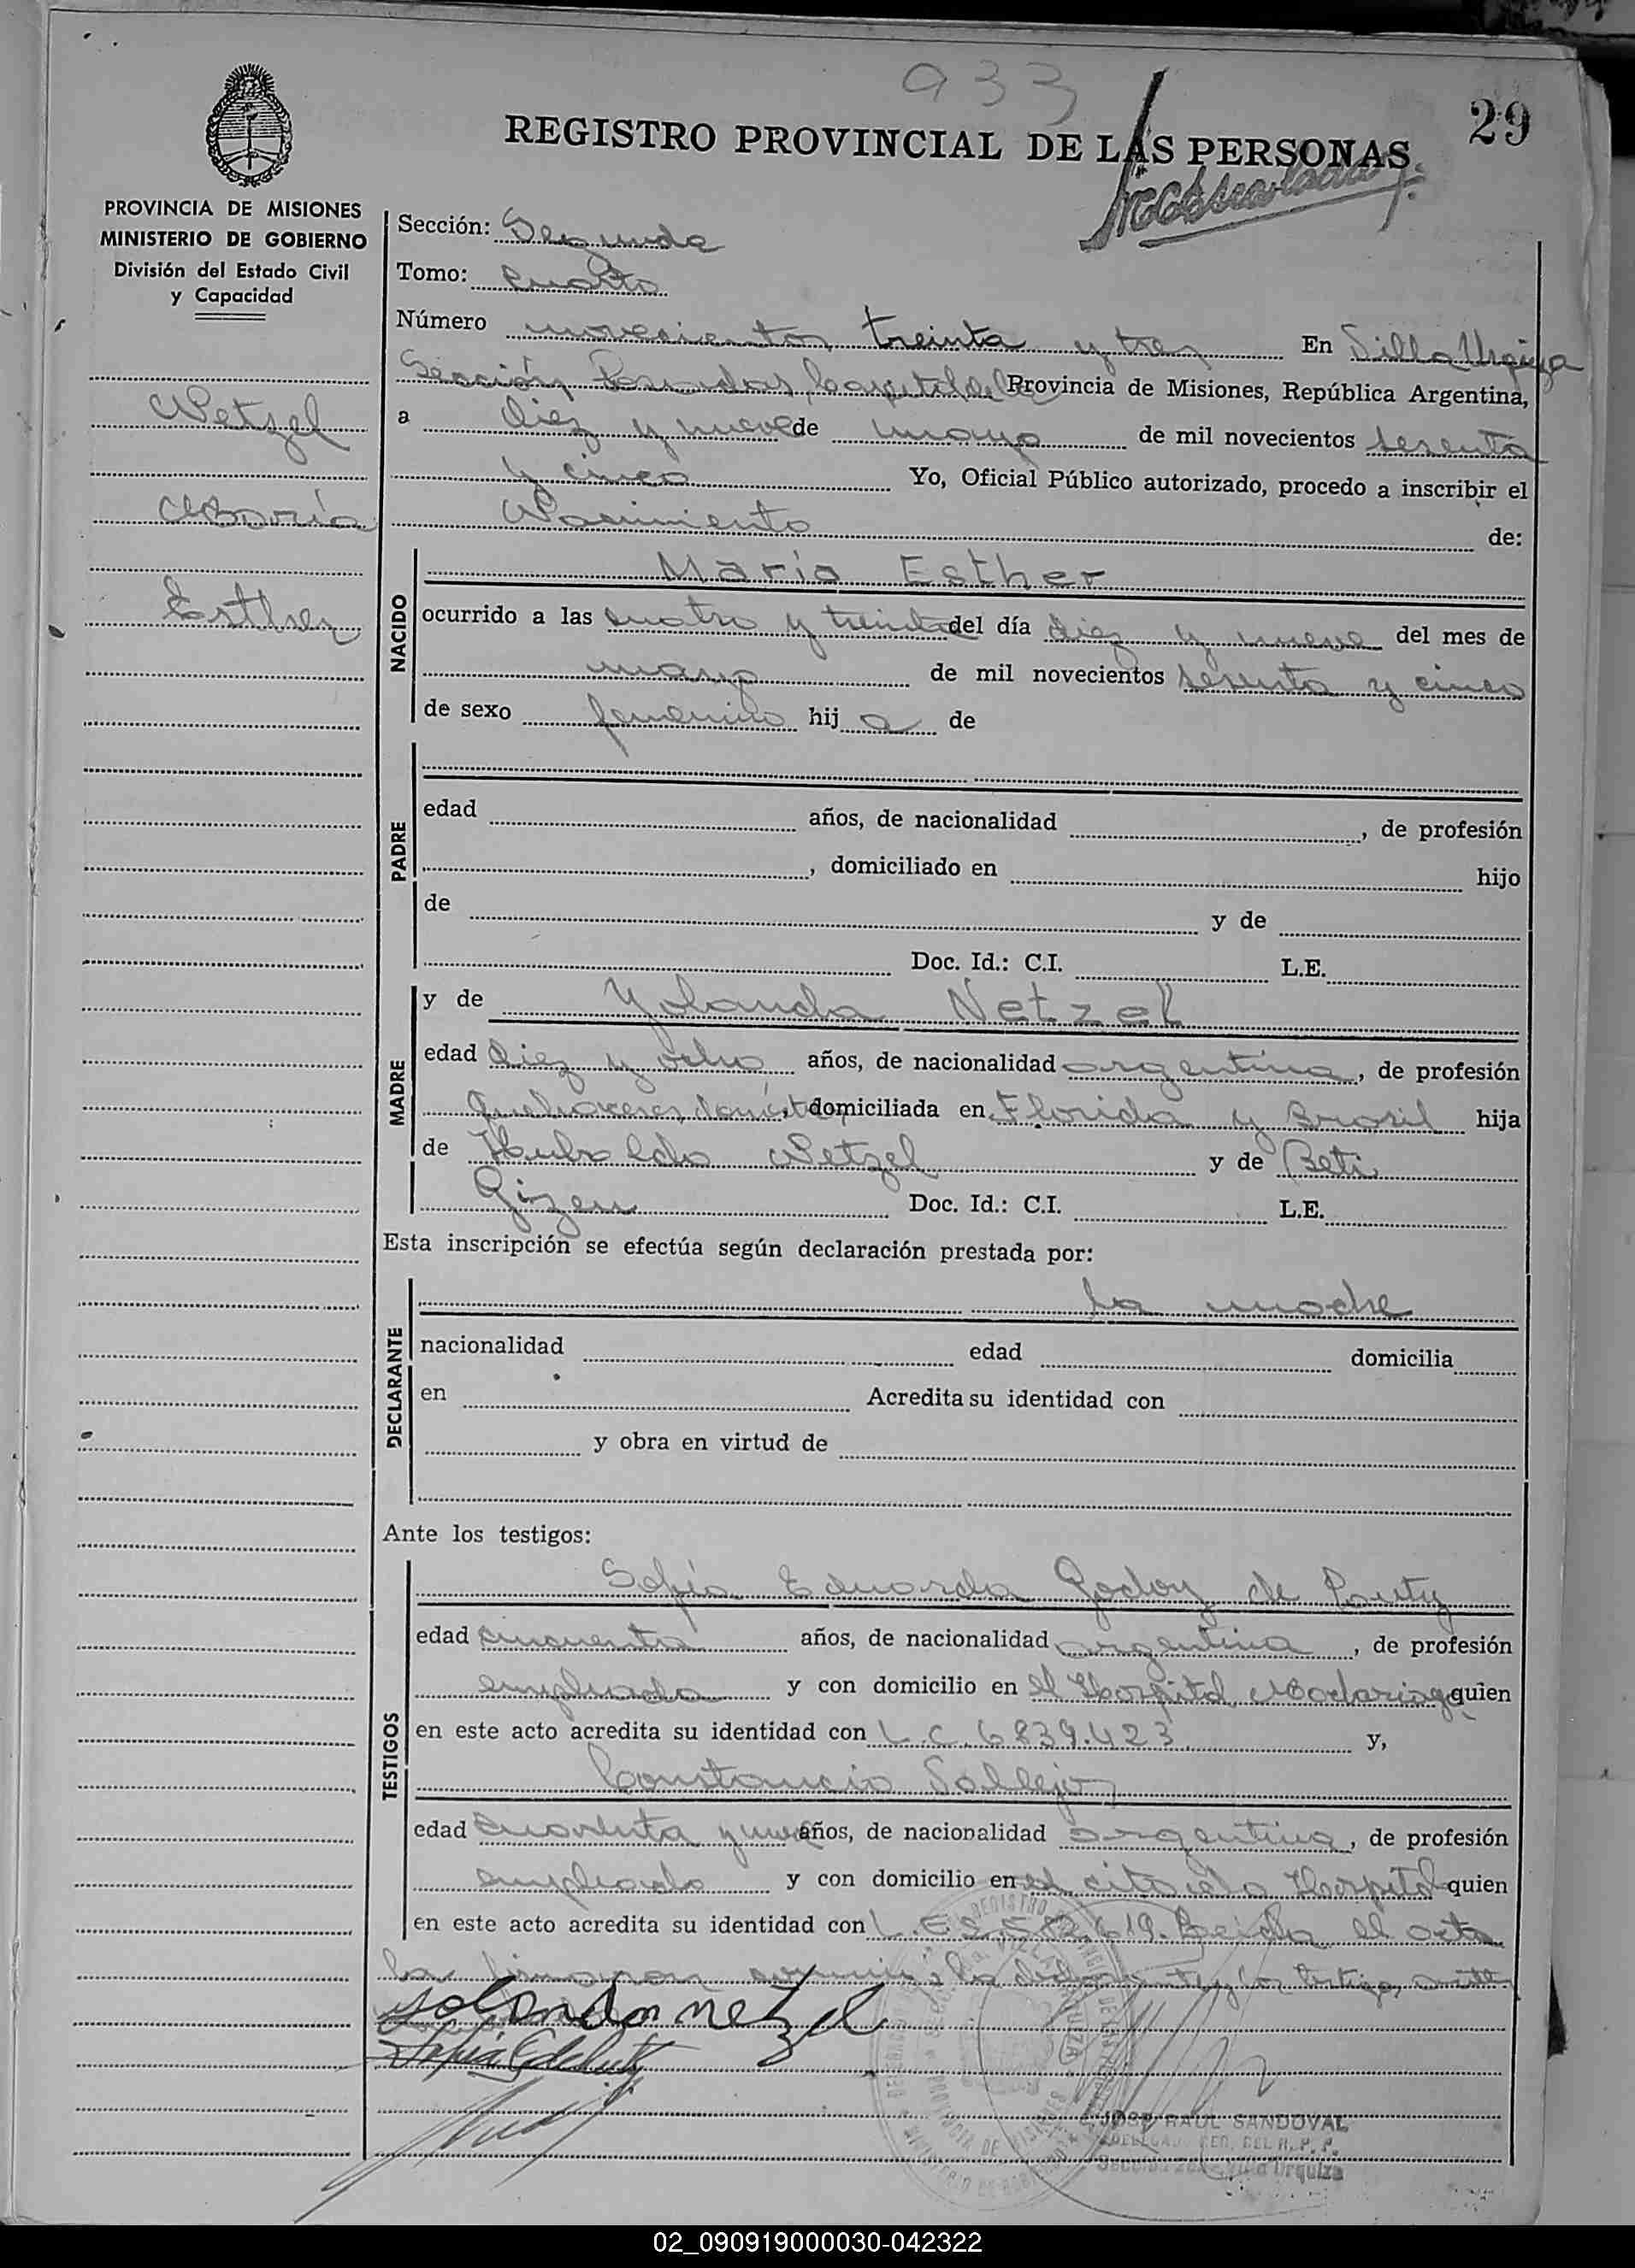 933
29
REGISTRO PROVINCIAL DE LAS PERSONAS
PROVINCIA DE MISIONES
MINISTERIO DE GOBIERNO
División del Estado Civil
y Capacidad
Netzel
María
Esther
Sección: Segunda
Tomo: Cuarto
Número novecientos treinta y tres En Villa Urquiza
Sección Posadas, Capital de Provincia de Misiones, República Argentina,
a diez y nueve de mayo de mil novecientos sesenta
y cinco Yo, Oficial Público autorizado, procedo a inscribir el
Nacimiento de:
NACIDO
María Esther
ocurrido a las cuatro y treinta del día diez y nueve del mes de
mayo de mil novecientos sesenta y cinco
de sexo femenino hij a de
PADRE
edad años, de nacionalidad , de profesión
, domiciliado en hijo
de y de
Doc. Id.: C.I. L.E.
MADRE
y de Yolanda Netzel
edad diez y ocho años, de nacionalidad argentina, de profesión
Quehaceres domést. domiciliada en Florida y Brasil hija
de Hubaldo Netzel y de Beti
Gizen Doc. Id.: C.I. L.E.
Esta inscripción se efectúa según declaración prestada por:
DECLARANTE
la madre
nacionalidad edad domicilia
en Acredita su identidad con
y obra en virtud de
Ante los testigos:
TESTIGOS
Sofía Eduarda Godoy de
edad cincuenta años, de nacionalidad argentina, de profesión
empleada y con domicilio en el Hospital Madariaga quien
en este acto acredita su identidad con L.C. 6839.423 y,
Constancio Vallejos
edad cuarenta y nueve años, de nacionalidad argentina, de profesión
empleado y con domicilio en el citado Hospital quien
en este acto acredita su identidad con L.E. Leída el acta
la firman la declarante y los testigos
yolanda netzel
JOSE RAUL SANDOVAL
Villa Urquiza
02_090919000030-042322